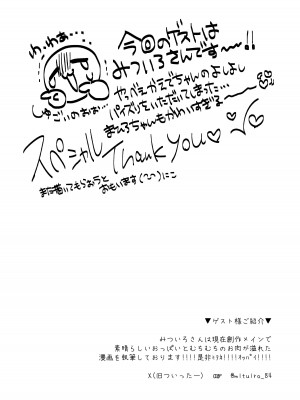 わ…わぁ…
しゅごいのぉぉ…
今回のゲストは
みついろさんです〜〜!!
やっべぇかえでちゃんのよしよし
パイズリをいただいてしまった…
まひろちゃんもかわいすぎる〜〜
スペシャル Thank You♡♡
また描いてもらおうと
おもいます(^^)にこ
▼ゲスト様ご紹介▼
みついろさんは現在創作メインで
素晴らしいおっぱいとむちむちのお肉が溢れた
漫画を執筆しております!!!!是非
X(旧ついったー) ☞ @mituiro_84